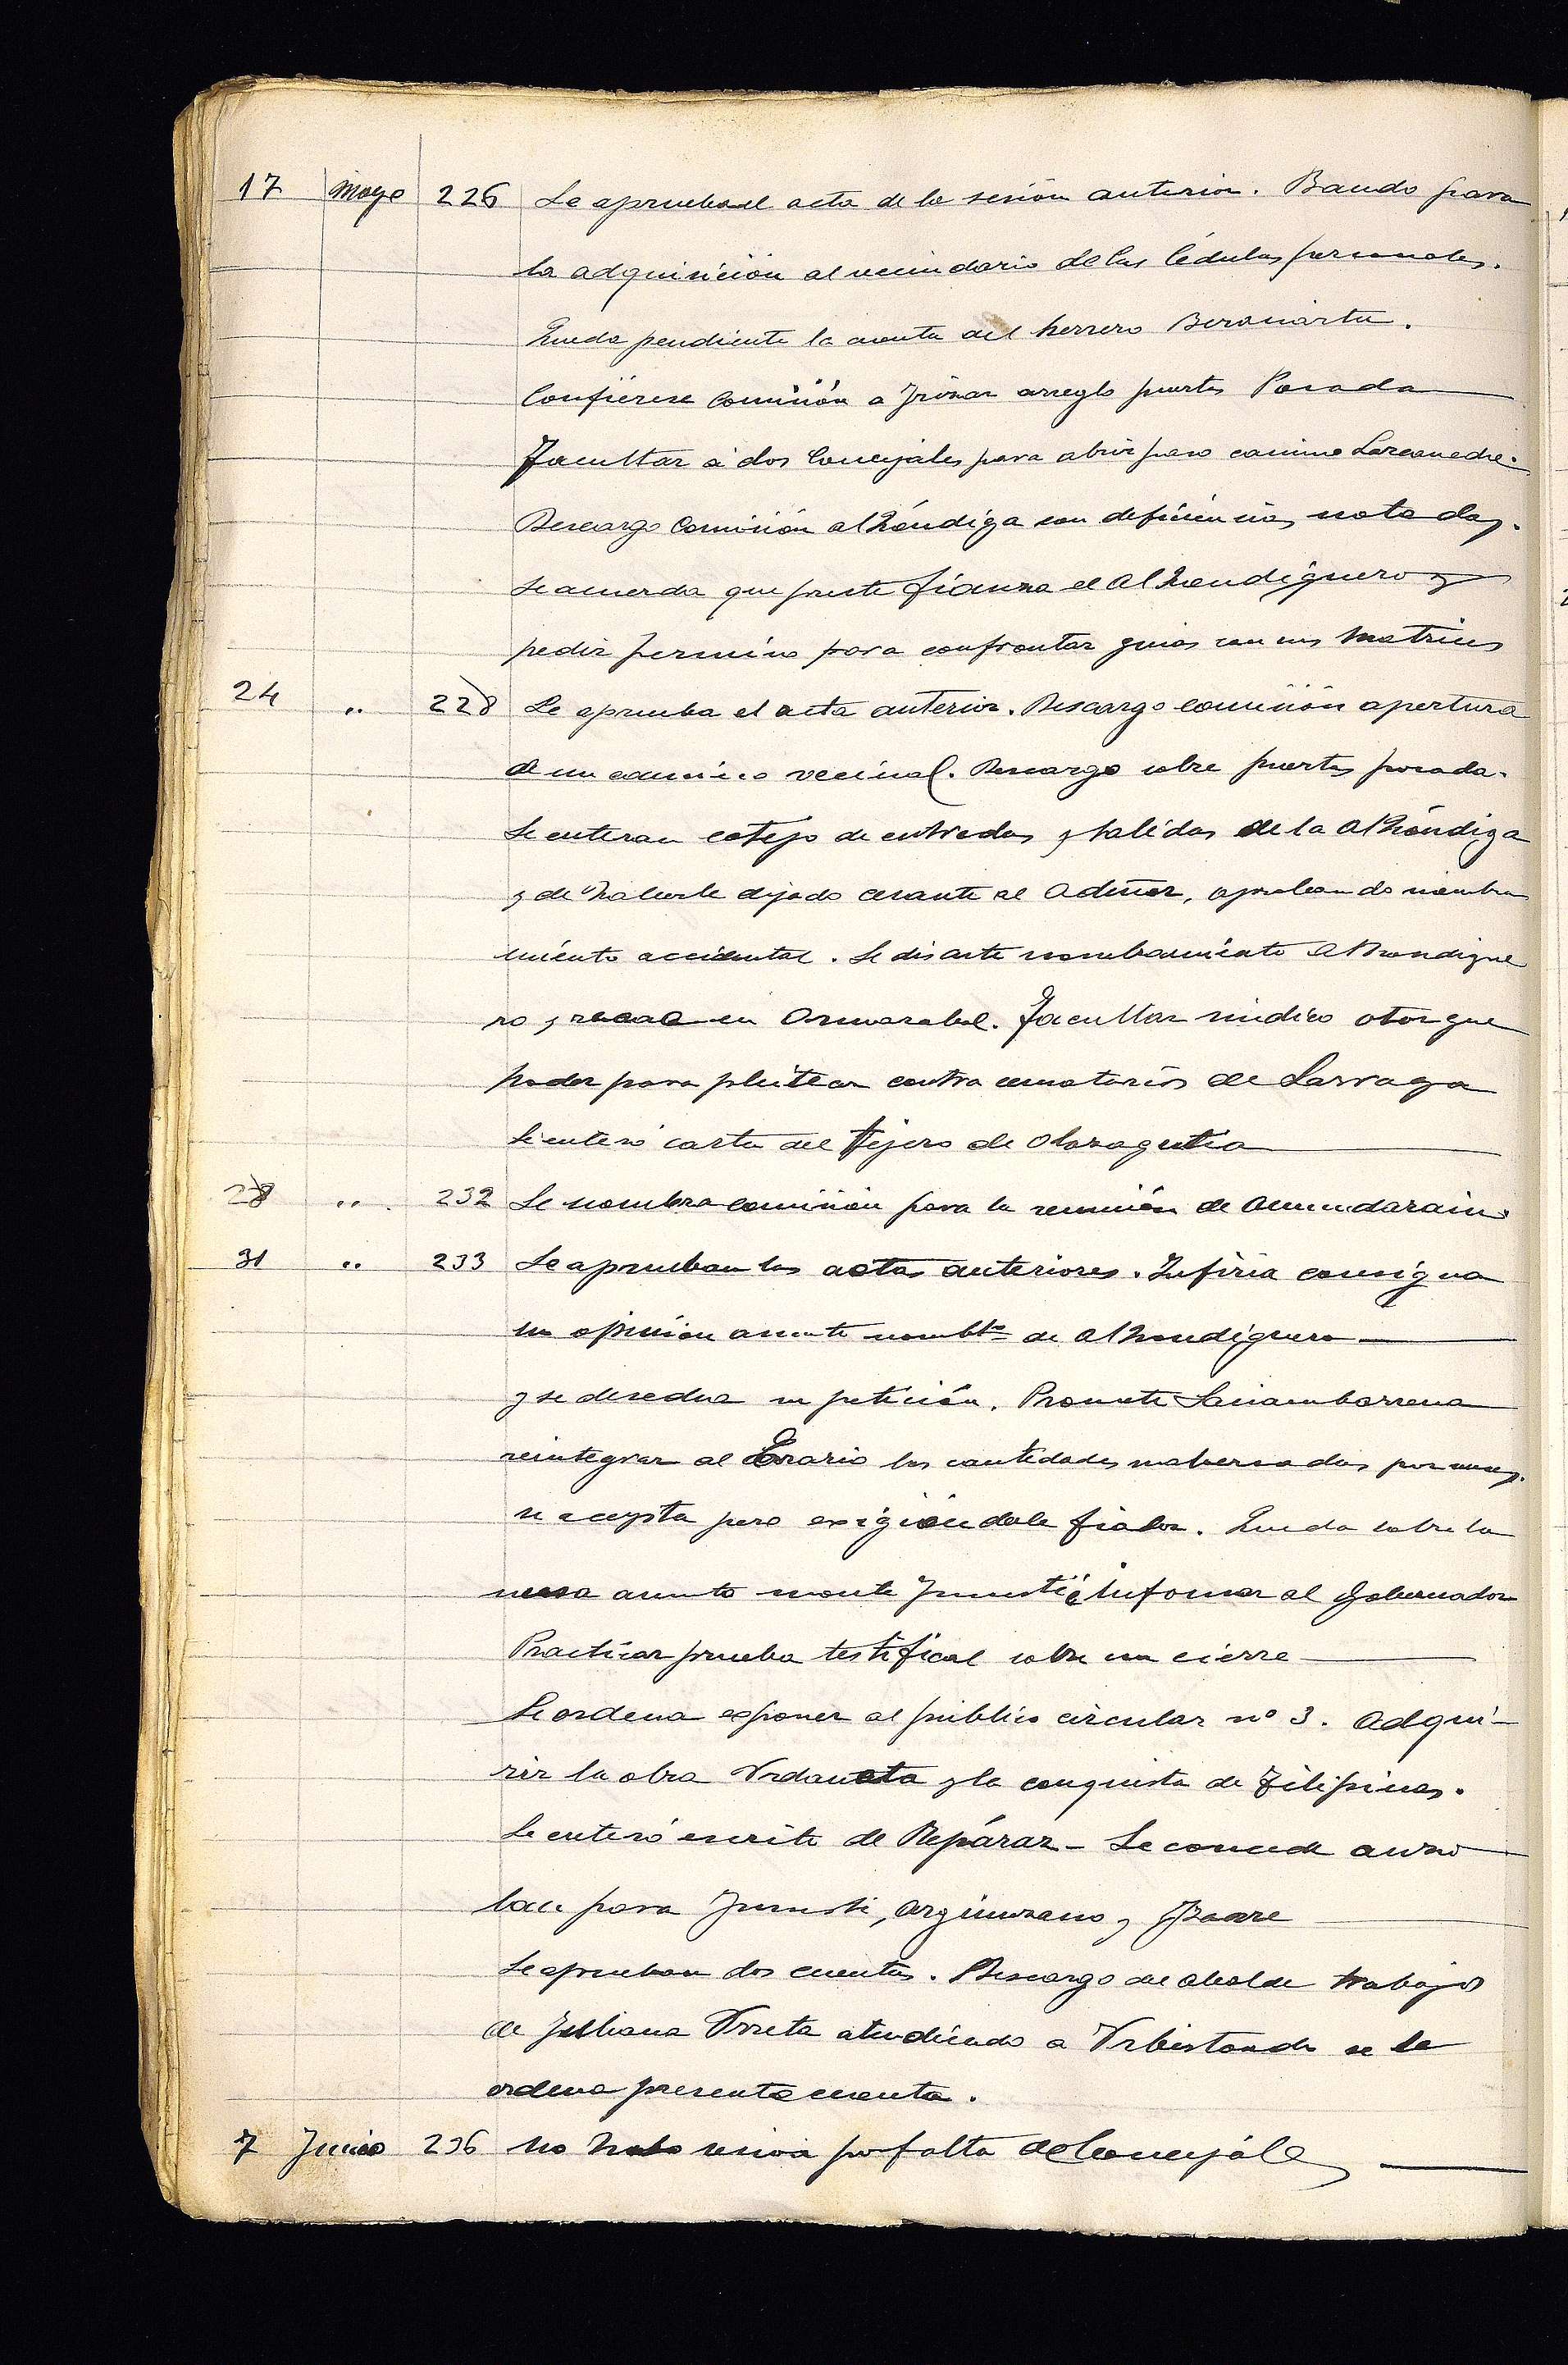 17 Mayo 226 Se aprueba el acta de la sesión anterior. Bando para
la adquisición al vecindario de las Cédulas personales.
Queda pendiente la cuenta del herrero Beraiartu.
Confiérese Comisión a Irizar arreglo puertas Posada
Facultar á dos Concejales para abrir paso camino
Descargo Comisión alhóndiga con deficiencias notadas.
Se acuerda que preste fianza el Alhondiguero y
pedir permiso para confrontar guias con sus matrices
24 " 228 Se aprueba el acta anterior. Descargo comisión apertura
de un camino vecinal. Descargo sobre puertas posada.
Se enteran cotejo de entradas y salidas de la Alhóndiga
y de haberle dejado cesante al Adme^or, aprobando nombra
miento accidental. Se discute nombramiento Alhondigue
ro y recae en Ormazabal. Facultar síndico otorgue
poder para pleitear contra cenatarios de Larraga
Se enteró carta del Tejero de Olazagutia
28 " 232 Se nombra comisión para la reunión de Amundarain.
31 " 233 Se aprueban las actas anteriores. Zufiria consigna
su opinión asunto nombto de Alhondiguero
y se desecha su petición. Promete Sarriambarrena
reintegrar al Erario las cantidades malversadas por
se acepta pero exigiéndole fiador. Queda sobre la
mesa asunto monte Jumusti é informar al Gobernador
Practicar prueba testifical sobre un cierre
Se ordena exponer al público circular nº 3. Adqui-
rir la obra Urdaneta y la conquista de Filipinas.
Se enteró escrito de Repáraz - Se concede auzo
lan para Jumusti, Arguinzano y Ibarre
Se aprueban dos cuentas. Descargo del alcalde trabajos
de Juliana Urreta atendiendo a Urbistondo se le
ordena presente cuenta.
7 Junio 236 No hubo sesión por falta de Concejales